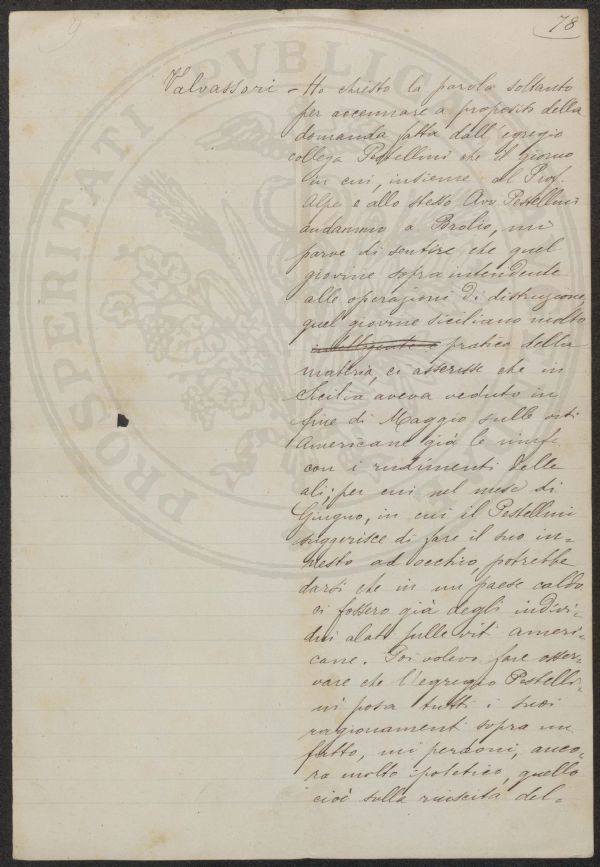 78
Valvassori - Ho chiesto la parola soltanto
per accennare a proposito della
domanda fatta dall'egregio
collega Pestellini che il giorno
in cui, insieme al Prof.
Alpe e allo stesso Avv. Pestellini
andammo a Brolio, mi
parve di sentire che quel
giovine sopraintendente
alle operazioni di distruzione,
quel giovine siciliano molto
intelligente e pratico della
materia, ci asserisse che in
Sicilia aveva veduto in
fine di Maggio sulle viti
Americane già le ninfe
con i rudimenti delle
ali; per cui nel mese di
Giugno, in cui il Pestellini
suggerisce di fare il suo in=
nesto ad occhio, potrebbe
darsi che in un paese caldo
ci fossero già degli indivi=
dui alati sulle viti ameri=
cane. Poi volevo fare osser=
vare che l'egregio Pestelli=
ni posa tutti i suoi
ragionamenti sopra un
fatto, mi perdoni, anco=
ra molto ipotetico, quello
cioè sulla riuscita del=
PROSPERITATI PUBLICAE